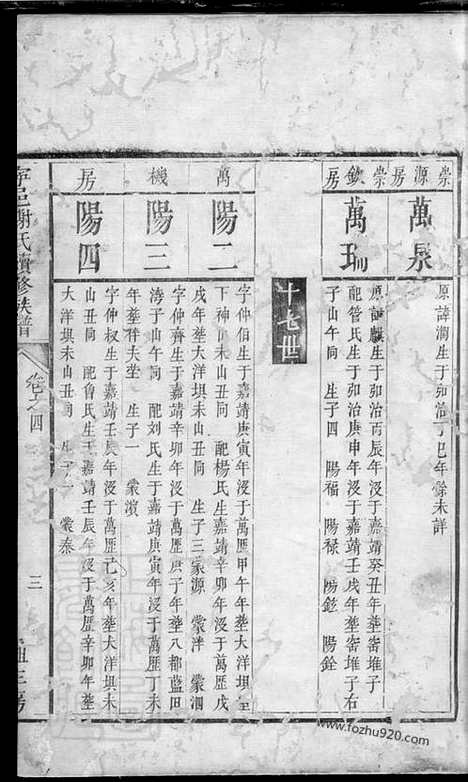 崇源房
萬泉
原諱潤生于弘治丁巳年餘未詳
崇欽房
萬瑞
原諱麒生于弘治丙辰年歿于嘉靖癸丑年塟畬堆子
配管氏生于弘治庚申年歿于嘉靖壬戌年塟畬堆子右
子山午向 生子四 陽福 陽祿 陽鉉 陽銓
十七世
萬機房
陽二
字仲伯生于嘉靖庚寅年歿于萬厯甲午年塟大洋垻
下神 未山丑向 配楊氏生嘉靖辛卯年歿于萬厯戊
戌年塟大洋垻未山丑向 生子三 蒙源 蒙泮 蒙泗
陽三
字仲齊生于嘉靖辛卯年歿于萬厯庚子年塟八都藍田
海子山午向 配刘氏生于嘉靖庚寅年歿于萬厯丁未
年塟祔夫塋 生子一 蒙濱
陽四
字仲叔生于嘉靖壬辰年歿于萬厯己亥年塟大洋垻未
山丑向 配魯氏生于嘉靖壬辰年歿于萬厯辛卯年塟
大洋垻未山丑向 生子一 蒙泰
寧邑謝氏續修族譜
卷之四
三
www.fozhu920.com